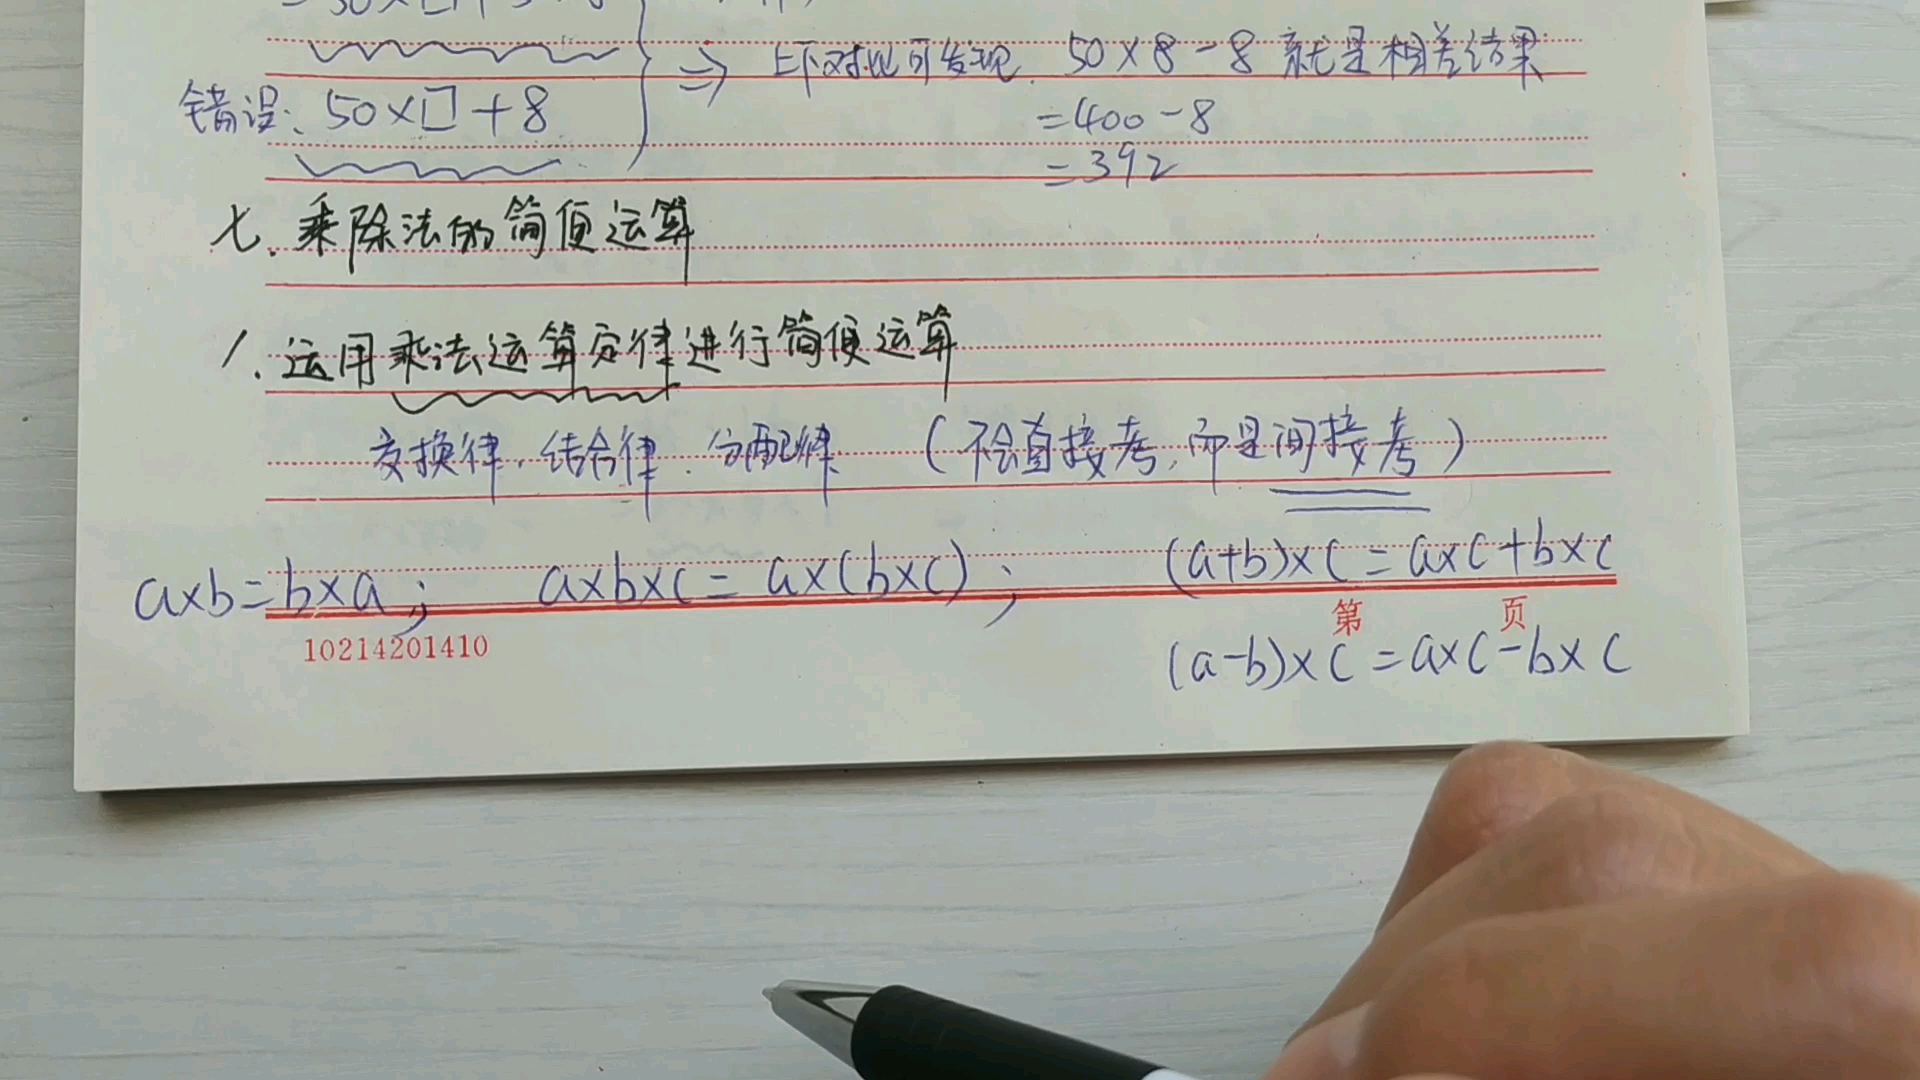 上下对比可发现. 50×8-8 就是相差结果
错误: 50×□+8
=400-8
=392
七. 乘除法的简便运算
1. 运用乘法运算定律进行简便运算
交换律. 结合律. 分配律 (不会直接考, 而是间接考)
a×b=b×a; a×b×c=a×(b×c); (a+b)×c=a×c+b×c
第 页
10214201410
(a-b)×c=a×c-b×c